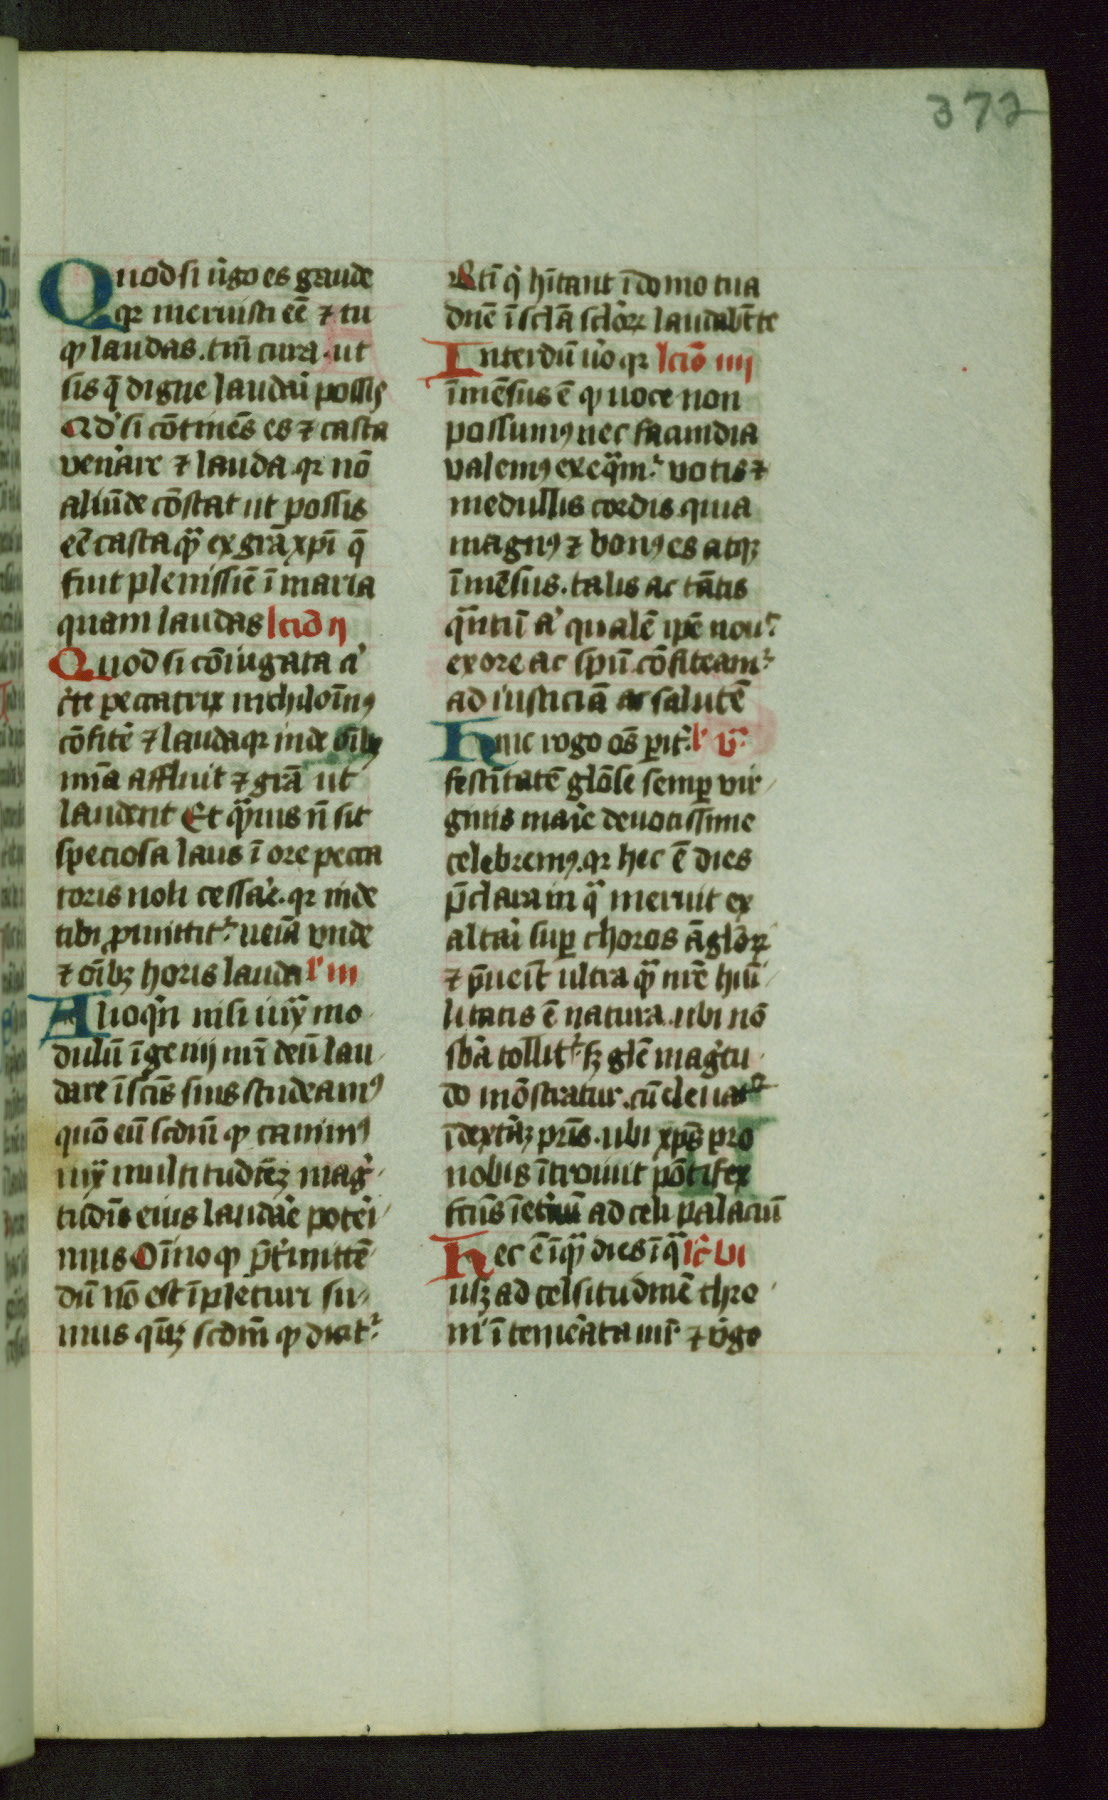 372
Quod si v̾go es gaude
qr meruisti eē ⁊ tu
qꝫ laudas. tm̄ cura. ut
sis q̄ digne laudari possis
Qd̾ si cōtinēs es ⁊ casta
ven̾are ⁊ lauda qr nō
aliūde cōstat ut possis
eē casta qͣꝫ ex grā xp̄i q̄
fuit plenissīe ī maria
quam laudas lcīo ij
Quod si cōiugata a̾
c̾te peccatrix nichiloīnꝰ
cōfite ⁊ lauda qr inde oīb
mīa affluit ⁊ grā ut
laudent Et qͣꝫuis n̄ sit
speciosa laus ī ore pecca
toris noli cessare. qr inde
tibi ꝓmittit᷑ ueīa vnde
⁊ oībꝫ horis lauda l̾ iii
Alioq̄n nisi iuxͣ mo
dulū īgenij nr̄i deū lau
dare ī scīs suis studeamꝰ
quō eū scdm̄ qꝫ canimꝰ
iuxͣ multitudīeꝫ mag̾
tudīs eius laudare poteri
mus Oīno qꝫ p̄t̾mitten
dū nō est īpleturi su
mus q̄tꝫ scdm̄ qꝫ dicit᷑
Btī q̾ hītant ī domo tua
dn̄e ī sclā sclorꝝ laudabt̄ te
Interdū u̾o qr lcīo iiii
īmēsus ē qꝫ uoce non
possumꝰ nec facundia
valemꝰ exeqͣm᷑ uotis ⁊
medullis cordis quia
magnꝰ ⁊ bonꝰ es atqꝫ
īmēsus. talis ac tātis
qͣntū a̾ qualē ip̄e nou᷑
ex ore ac spū cōfiteam᷑
ad iusticiā ac salutē
Hinc rogo os̄ pit̾ l̾ v
festītatē glōse semp vir
ginis marie deuotissime
celebremꝰ. qr hec ē dies
p̄clara in qͣ meruit ex
altari sup choros āglorꝝ
⁊ p̄ueīt ultra qͣꝫ nr̄e hūi
litatis ē natura. ubi nō
sb̄a tollit᷑ sꝫ glē mag̾tu
do mōstratur. cū eleuat᷑
ī dextraꝫ pr̄is. ubi xp̄s pro
nobis ītroiuit pōtifex
fcūs īet̾nū ad celi palaciū
Hec ē īqͣꝫ dies ī qͣ lc̾ vi
usqꝫ ad celsitudinē thro
ni ītemerata mr̄ ⁊ v̾go